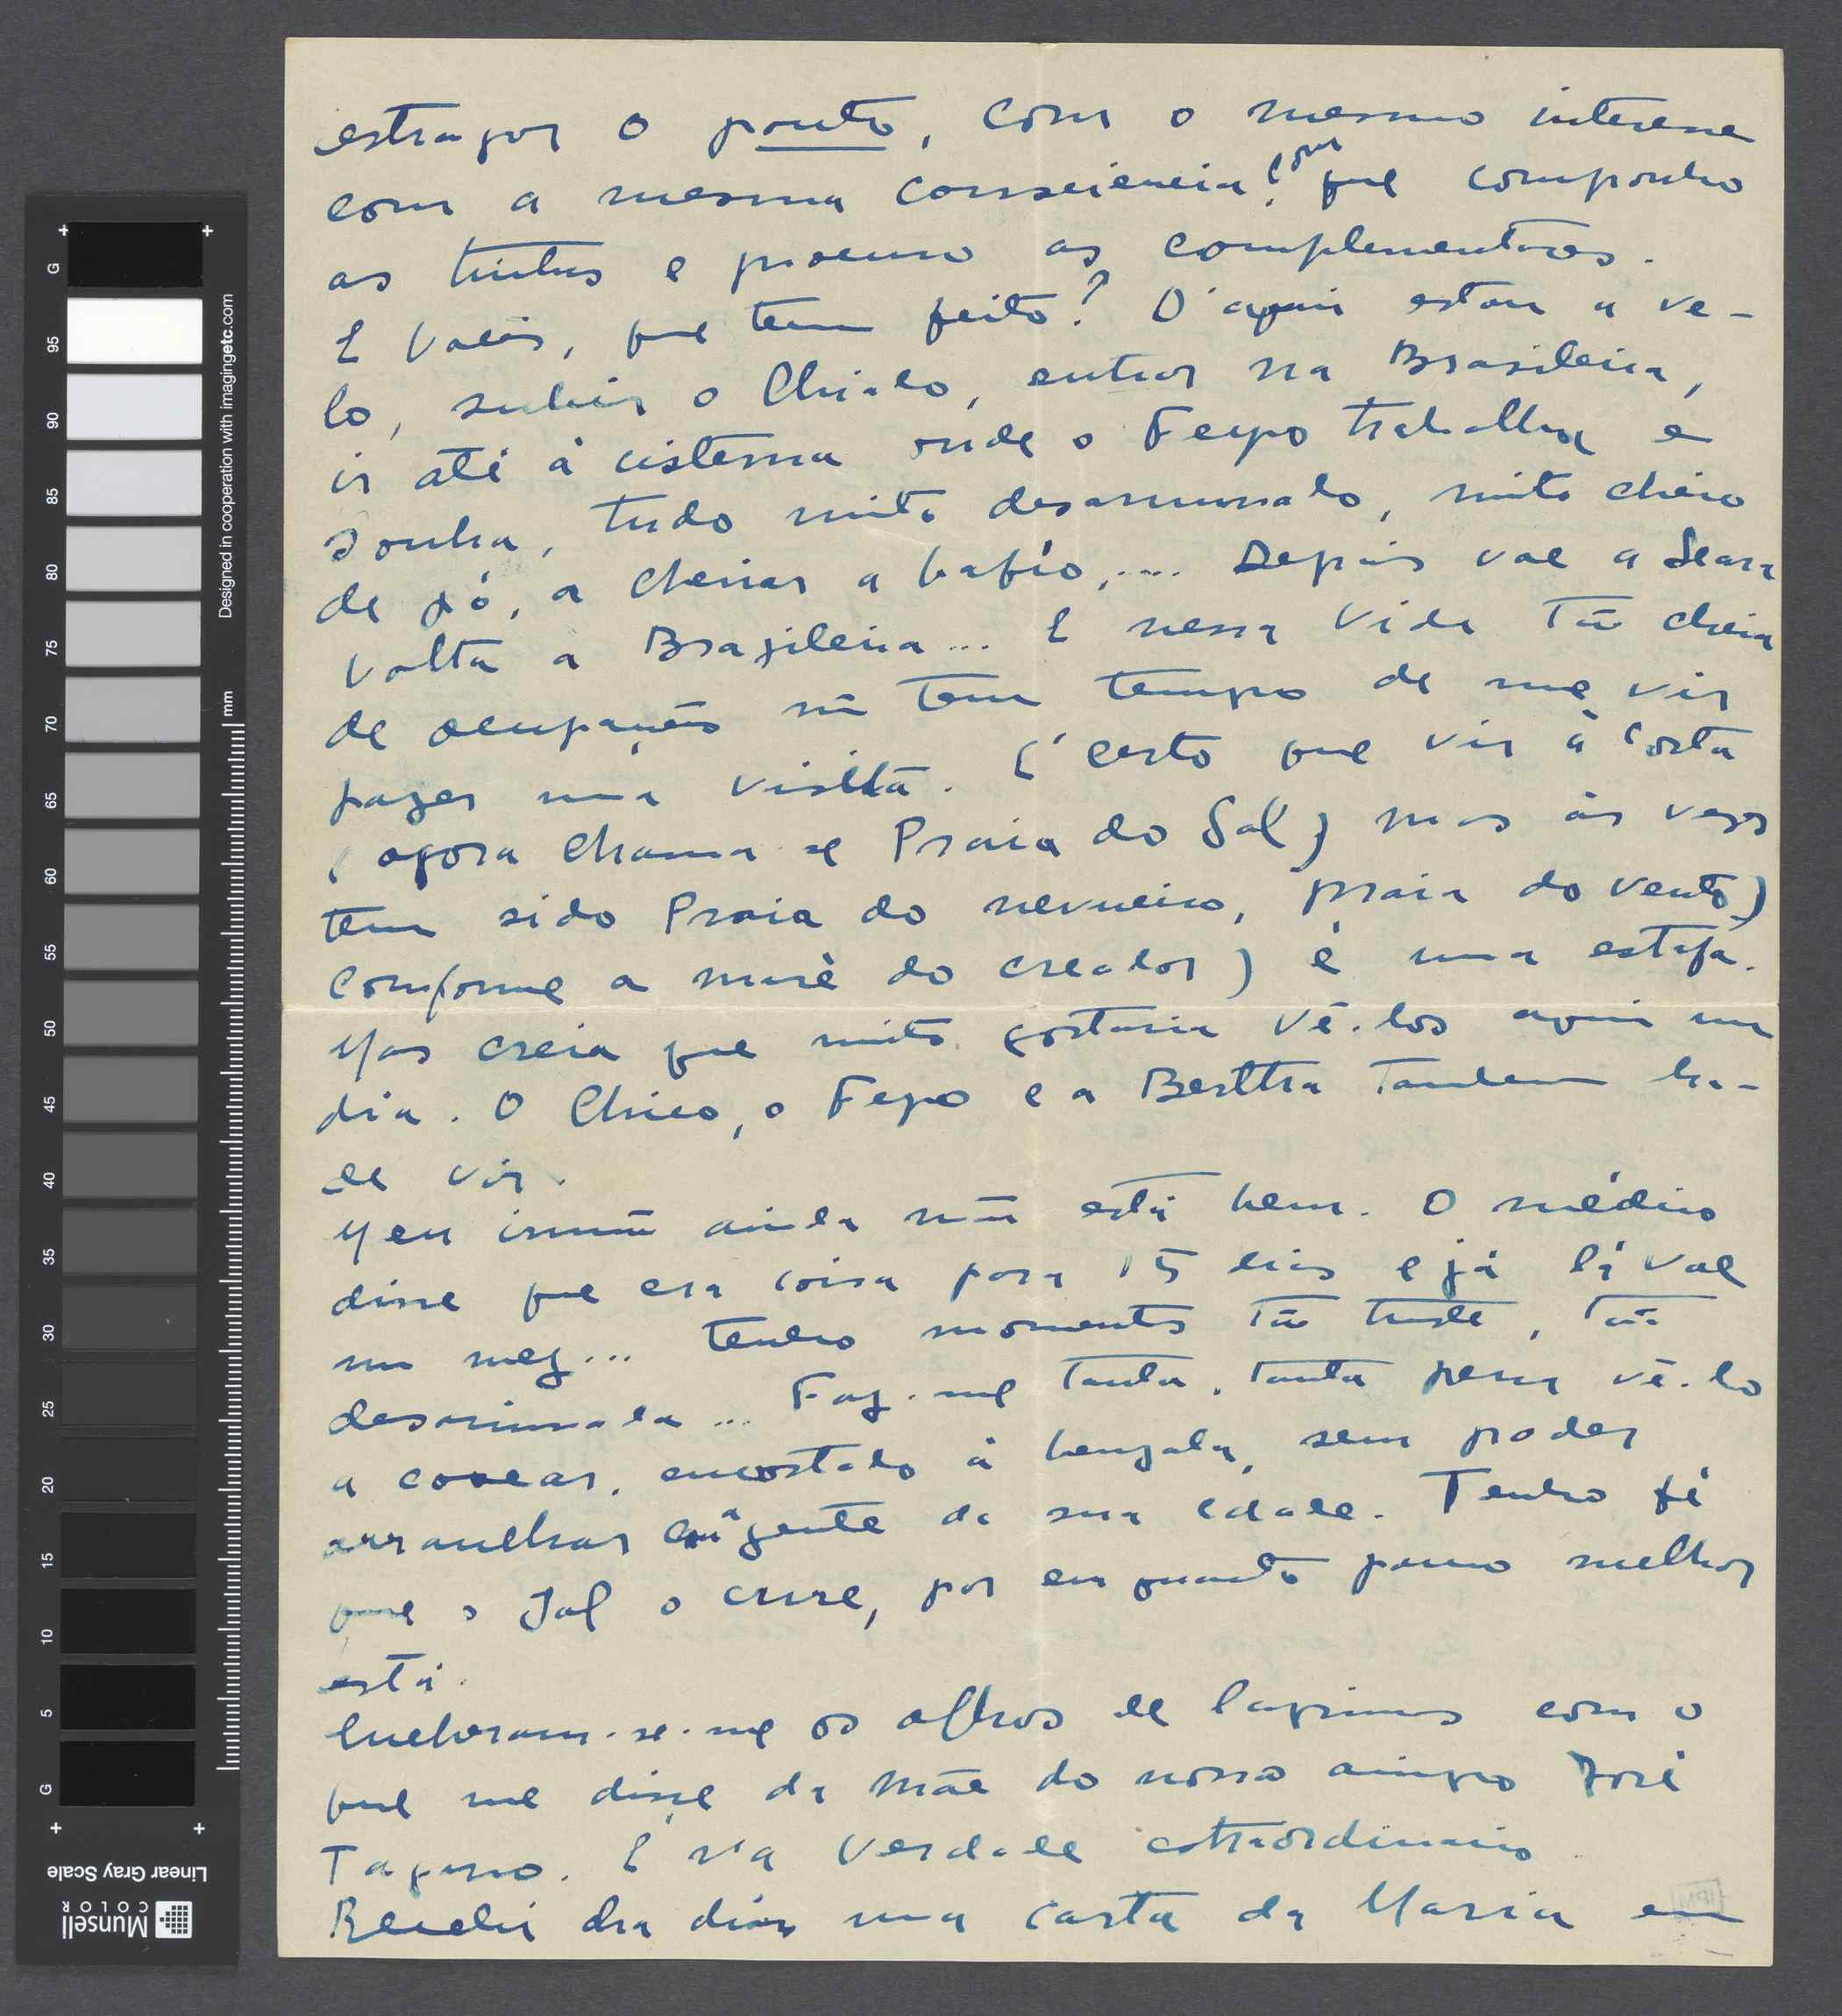 estragar o ponto, com o mesmo interesse
com a mesma consciencia! com que componho
as tintas e procuro as complementares.
E Vocês, que tem feito? D'aqui estou a ve-
lo, subir o Chiado, entrar na Brasileira,
ir até á cisterna onde o Feyo trabalha e
sonha, tudo muito desarrumado, muito cheio
de pó, a cheirar a bafio,.... Depois vae a Seara
volta a Brazileira... E nessa vida tã cheia
de ocupações nã tem tempo de me vir
fazer uma visita. E' certo que vir á Costa
(agora chama se Praia do Sol) mas ás vezes
tem sido Praia do nevueiro, praia do vento)
conforme a maré do creador) é uma estafa.
Mas creia que muito gostaria vê-los aqui um
dia. O Chico, o Feyo e a Berttha tambem ha-
de vir.
Meu irmã ainda nã está bem. O médico
disse que era coisa para 15 dias e já lá vae
um mez... Tenho momentos tã triste, tã
desanimada... Faz-me tanta, tanta pena vê-lo
a coxear, encostado á bengala, sem poder
acranchar cõ gente da sua edade. Tenho fé
que o Sol o cure, por em quanto pouco melhor
está.
Encheram-se-me os olhos de lagrimas com o
que me disse da Mãe do nosso amigo José
Tagarro. E' n'a verdade estraordinario
Recebi ha dias uma carta da Maria em
Designed in cooperation with imagingetc.com
mm
G
95
90
85
80
75
70
65
60
55
50
45
40
35
30
25
20
15
10
5
G
Linear Gray Scale
Munsell
COLOR